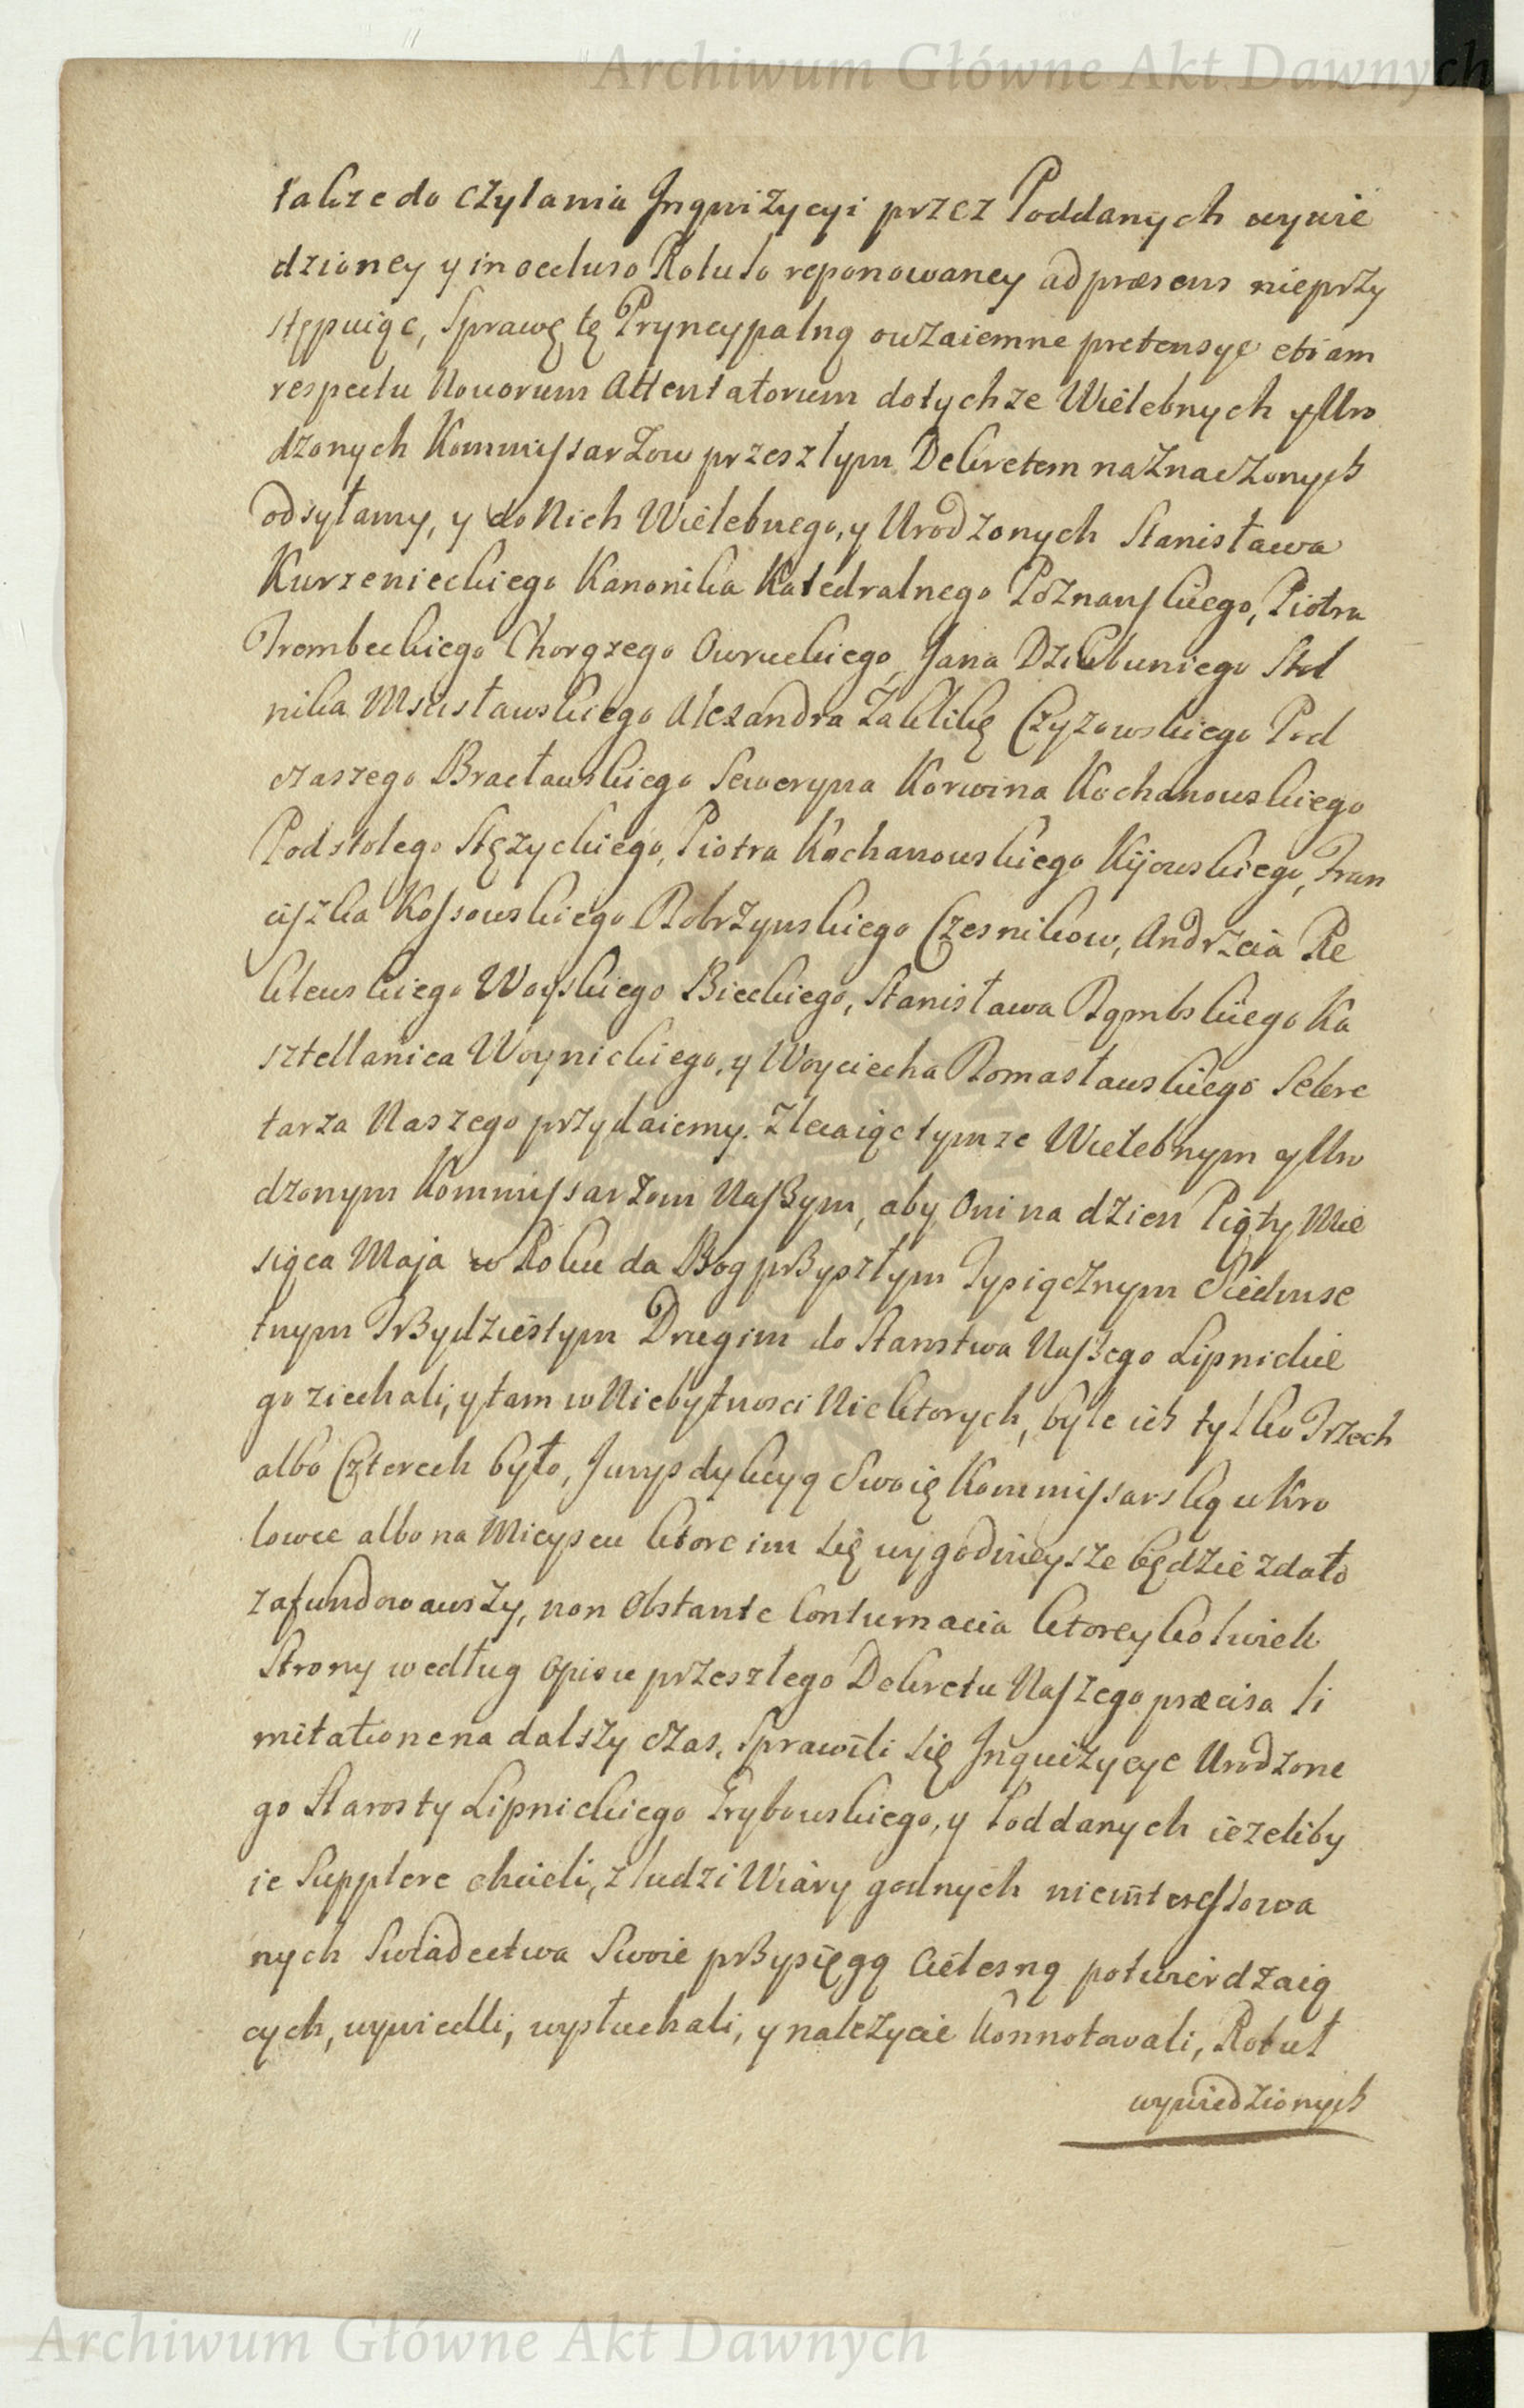 Archiwum Główne Akt Dawnych
takze do czytania Jnqwizycyi przez Poddanych wywie
dzioney y in occluso Rotulo reponowaney ad præsens nieprzy
stępuiąc, Sprawę tę Pryncypalną o wzaiemne pretensye etiam
respectu Novorum Attentatorum do tychze Wielebnych y Uro
dzonych Kommissarzow przeszłym Dekretem naznaczonych
odsyłamy, y do Nich Wielebnego, y Urodzonych Stanisława
Kurzenieckiego Kanonika Katedralnego Poznanskiego, Piotra
Trembeckiego Chorązego Owruckiego, Jana Dziubuniego Stol
nika Mscisławskiego Alexandra Zaklikę Czyzowskiego Pod
czaszego Bracławskiego Seweryna Korwina Kochanowskiego
Podstolego Stęzyckiego, Piotra Kochanowskiego Kijowskiego, Fran
ciszka Kossowskiego Dobrzynskiego Czesnikow, Andrzeia Re
klewskiego Woyskiego Bieckiego, Stanisława Dąmbskiego Ka
sztellanica Woynickiego, y Woyciecha Domasławskiego Sekre
tarza Naszego przydaiemy. Zlecaiąc tymze Wielebnym y Uro
dzonym Kommissarzom Naszym, aby Oni na dzien Piąty Mie
siąca Maja w Roku da Bog przyszłym Tysiącznym Siedmse
tnym Trzydziestym Drugim do Starostwa Naszego Lipnickie
go ziechali, y tam w Niebytnosci Niektorych, byle ich tylko Trzech
albo Czterech było, Jurysdykcyą Swoię Kommissarską w Kro
lowce albo na Mieyscu ktore im się wygodnieysze będzie zdało
zafundowawszy, non Obstante Contumacia ktoreykolwiek
Strony według opisu przeszłego Dekretu Naszego præcisa li
mitatione na dalszy czas, Sprawili się Jnquizycye Urodzone
go Starosty Lipnickiego Grybowskiego, y Poddanych iezeliby
ie Supplere chcieli, z ludzi Wiary godnych nieinteressowa
nych Swiadectwa Swoie przysięgą Cielesną potwierdzaią
cych, wywiedli, wysłuchali, y nalezycie Konnotowali, Rotuł
wywiedzionych
Archiwum Główne Akt Dawnych